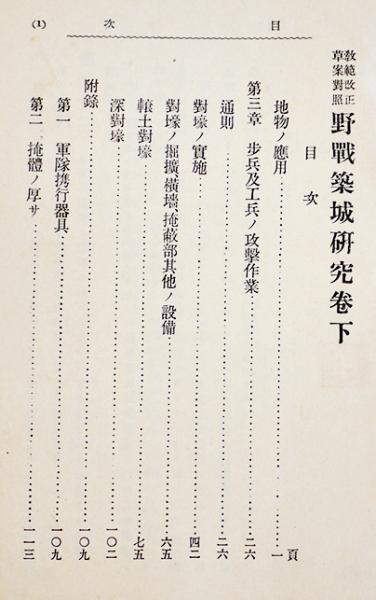 目次
(1)
教範改正
草案對照
野戰築城研究卷下
目次
頁
地物ノ應用……一
第三章 步兵及工兵ノ攻擊作業……二六
通則……二六
對壕ノ實施……四二
對壕ノ掘擴橫墻掩蔽部其他ノ設備……六五
轅土對壕……七五
深對壕……一〇二
附錄……一〇九
第一 軍隊携行器具……一〇九
第二 掩體ノ厚サ……一一三